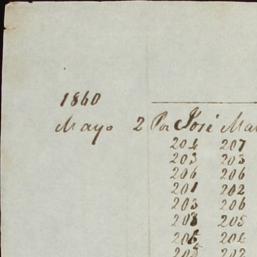 1860
Mayo 2 Por José Mar
204 207
203 203
206 206
201 202
203 206
208 205
206 206
205 202